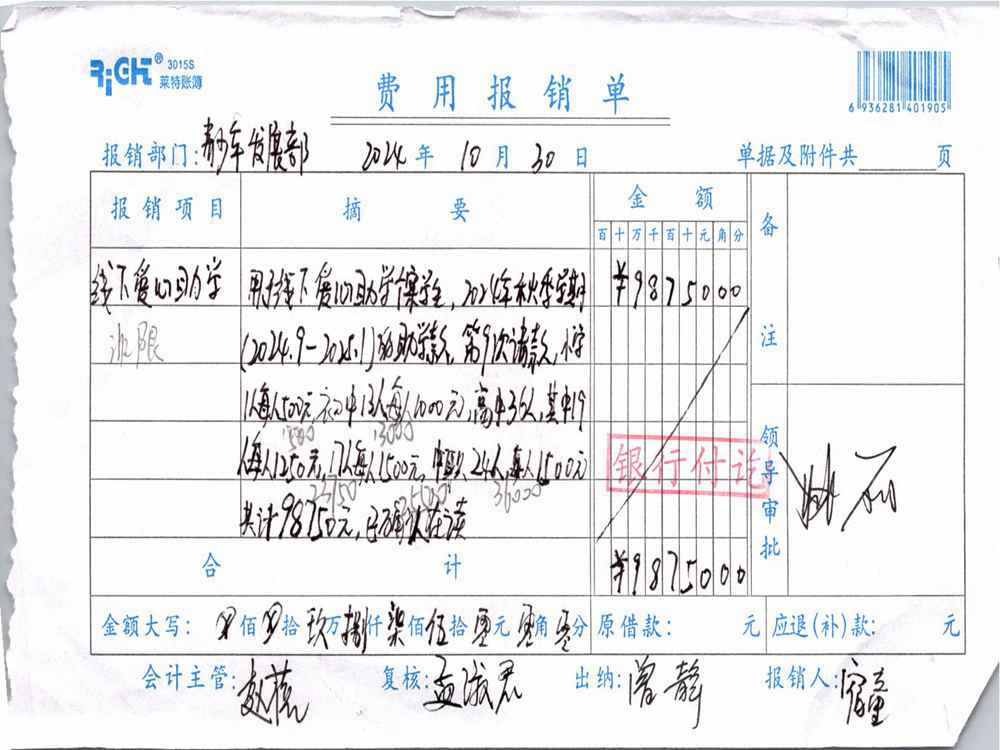 RiGHT® 3015S
莱特账簿
费用报销单
6 936281 401905
报销部门:青少年发展部 2024年10月30日 单据及附件共 页
报销项目 摘要 金额 备注
百十万千百十元角分
线下爱心助学 用于线下爱心助学档案学生,2024年秋季学期 ¥9875000
(2024.9-2025.1)的助学款,第9次请款,小学
1人每人500元,初中13人每人1000元,高中36人,其中19
13000
人每人1250元,17人每人1500元,中职 24人,每人1500元
23750 36000
共计98750元,已确认在读
银行付讫
领导审批
合计 ¥9875000
金额大写: 佰 拾玖万捌仟柒佰伍拾零元零角零分 原借款: 元 应退(补)款: 元
会计主管: 赵 复核: 孟淑君 出纳: 曾静 报销人: